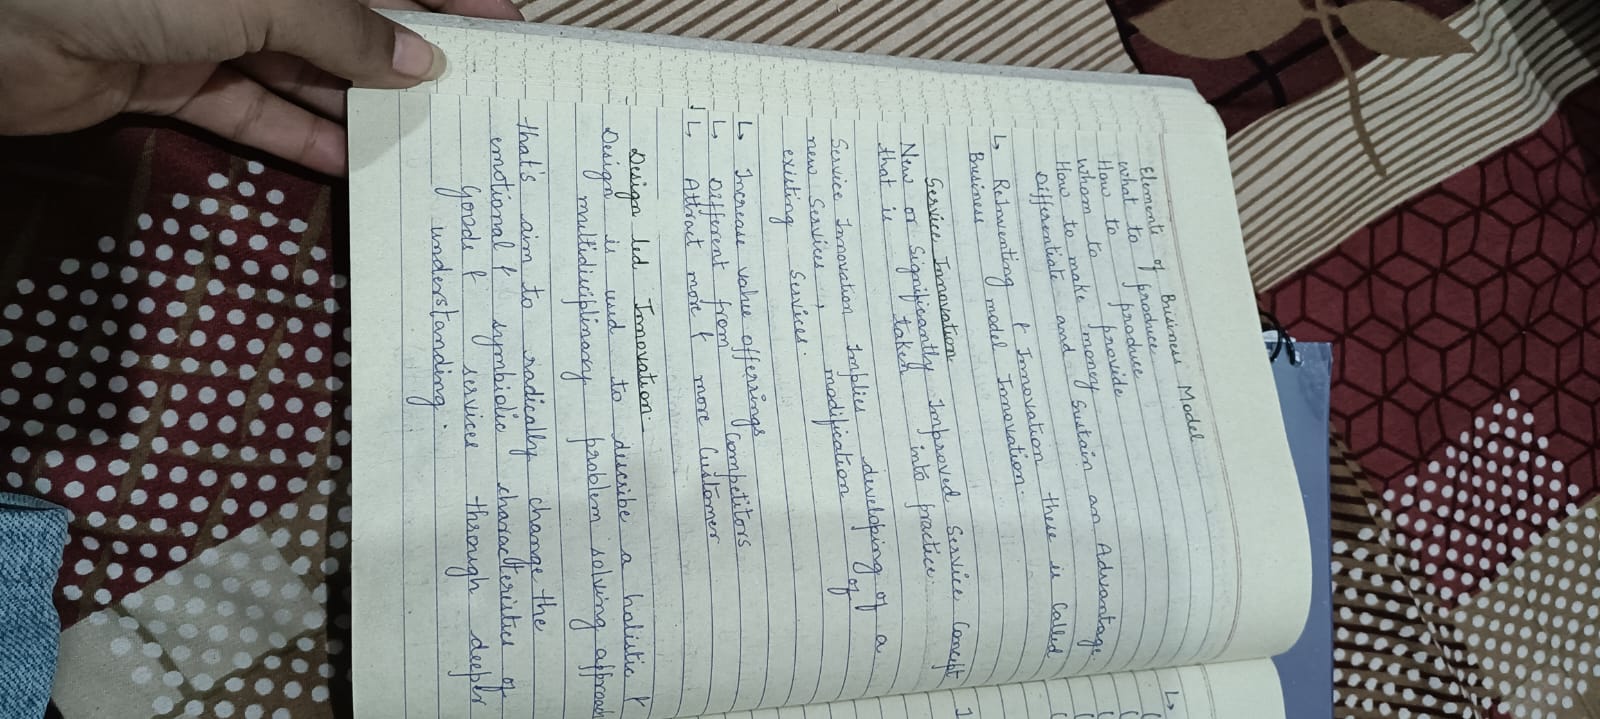 Elements of Business Model
what to produce
How to produce
whom to provide
How to make money
Differentiate and Sustain an Advantage.
↳ ReInventing & Innovation these is Called
Business model Innovation.
Service Innovation
New or Significantly Improved Service Concept
that is taken into practice.
Service Innovation Implies developing of a
new Services, modification of
existing Services.
↳ Increase value offerrings
↳ Different from Competitors
↳ Attract more & more Customer
Design led Innovation.
Design is used to discribe a holistic &
multidisciplinary problem solving approach
that's aim to radically change the
emotional & symbiolic characteristics of
Goods & services through deeper
understanding.